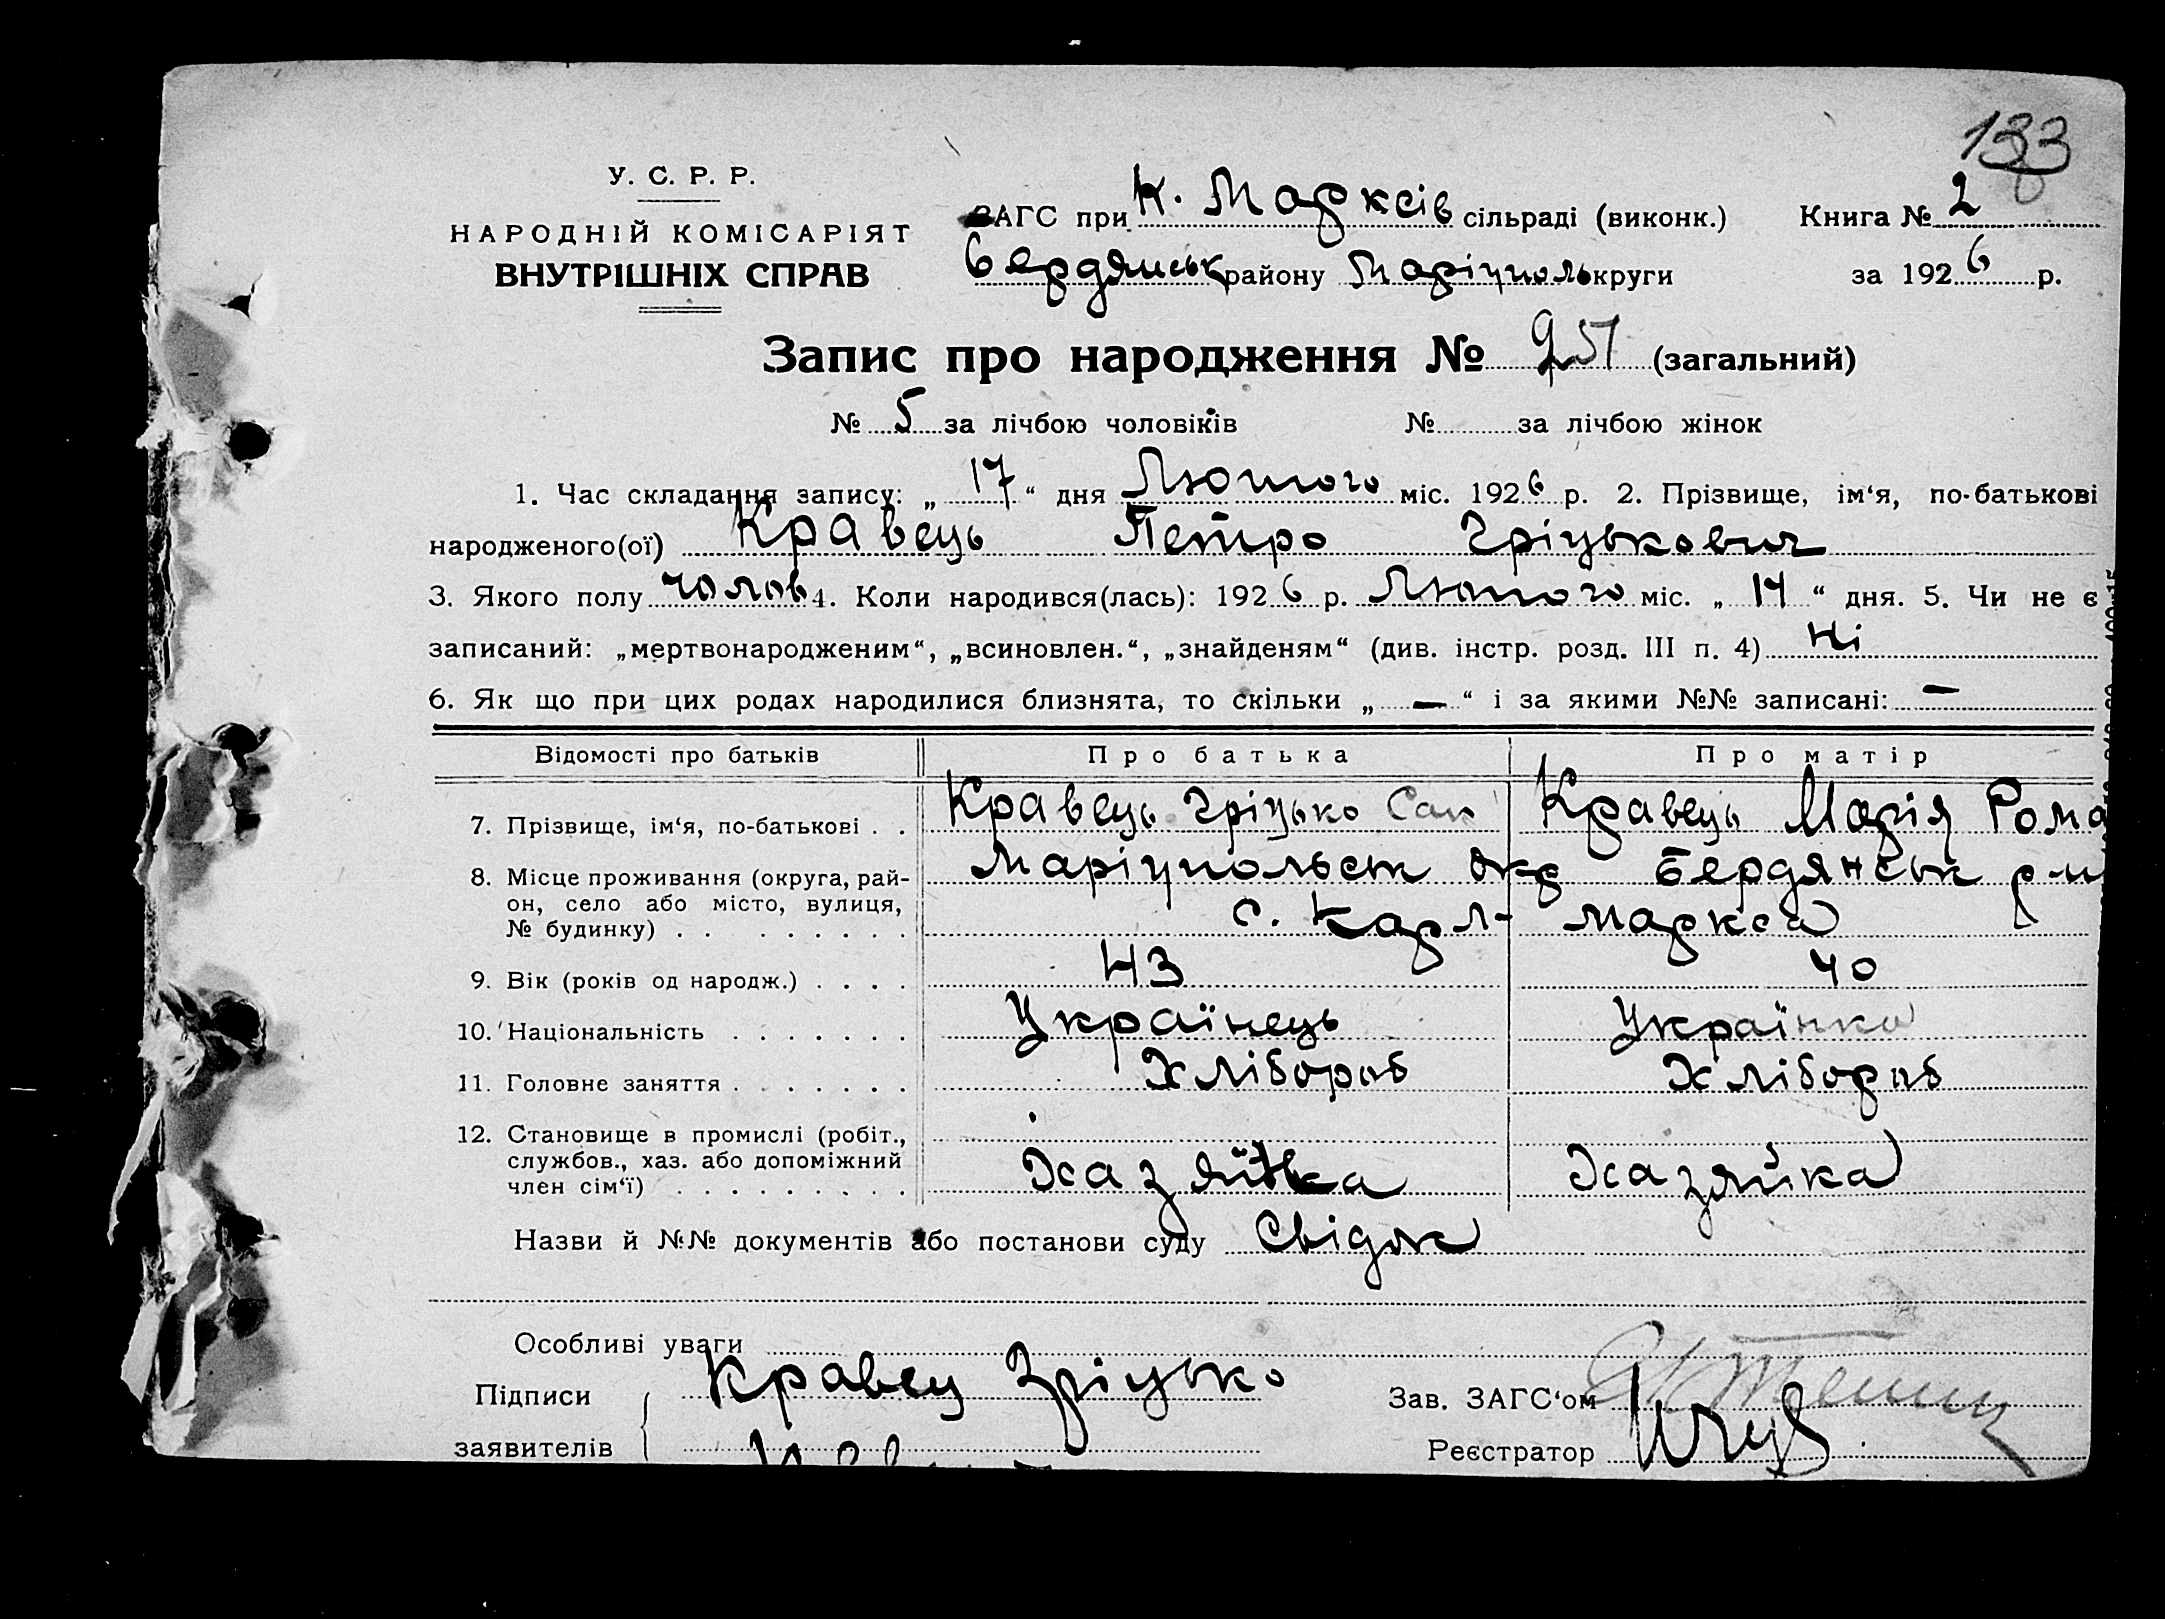 133
У. С. Р. Р.
НАРОДНІЙ КОМІСАРІЯТ
ВНУТРІШНІХ СПРАВ
ЗАГС при К. Марксів сільраді (виконк.) Книга № 2
Бердянськ району Маріуполь округи за 1926 р.
Запис про народження № (загальний)
№ 5 за лічбою чоловіків № за лічбою жінок
1. Час складання запису: „17“ дня Лютого міс. 1926 р. 2. Прізвище, ім‘я, по-батькові
народженого(ої) Кравець Петро Гріцькович
3. Якого полу чолов 4. Коли народився(лась): 1926 р. Лютого міс. „14“ дня. 5. Чи не є
записаний: „мертвонародженим“, „всиновлен.“, „знайденям“ (див. інстр. розд. III п. 4) Ні
6. Як що при цих родах народилися близнята, то скільки „—“ і за якими №№ записані: —
Відомості про батьків Про батька Про матір
7. Прізвище, ім‘я, по-батькові . . Кравець Гріцько Кравець Марія Рома
8. Місце проживання (округа, рай-
он, село або місто, вулиця,
№ будинку) . . . . . . . . Маріупольськ окр Бердянськ р-н
с. Карл-Маркса
9. Вік (років од народж.) . . . . 43 40
10. Національність . . . . . . . Українець Українка
11. Головне заняття . . . . . . . Хлібороб Хлібороб
12. Становище в промислі (робіт.,
службов., хаз. або допоміжний
член сім‘ї) . . . . . . . . . Хазяйка
Назви й №№ документів або постанови суду Свідок
Особливі уваги
Підписи Кравец Гріцько Зав. ЗАГС‘ом
заявителів Реєстратор